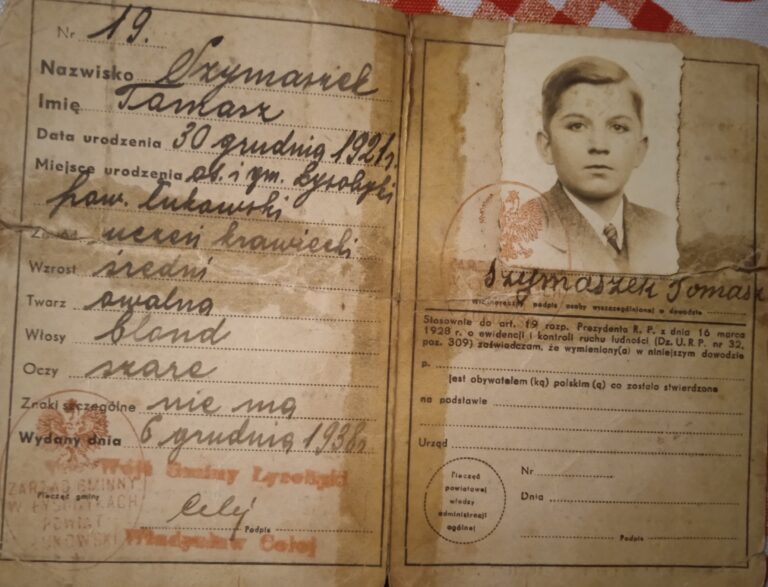 Nr 19.
Nazwisko Szymasiek
Imię Tomasz
Data urodzenia 30 grudnia 1921r.
Miejsce urodzenia os. i gm. Łysobyki
pow. Łukowski
Zawód uczeń krawiecki
Wzrost średni
Twarz owalna
Włosy blond
Oczy szare
Znaki szczególne nie ma
Wydany dnia 6 grudnia 1938r.
Wójt Gminy Łysobyki
ZARZĄD GMINNY
W ŁYSOBYKACH
POWIAT
ŁUKOWSKI
Pieczęć gminy
Podpis
Władysław Celej
Szymaszek Tomasz
Własnoręczny podpis osoby wyszczególnionej w dowodzie
Stosownie do art. 19 rozp. Prezydenta R. P. z dnia 16 marca
1928 r. o ewidencji i kontroli ruchu ludności (Dz. U. R. P. nr 32,
poz. 309) zaświadczam, że wymieniony(a) w niniejszym dowodzie
p.
jest obywatelem (ką) polskim (ą) co zostało stwierdzone
na podstawie
Urząd
Pieczęć
powiatowej
władzy
administracji
ogólnej
Nr
Dnia
Podpis